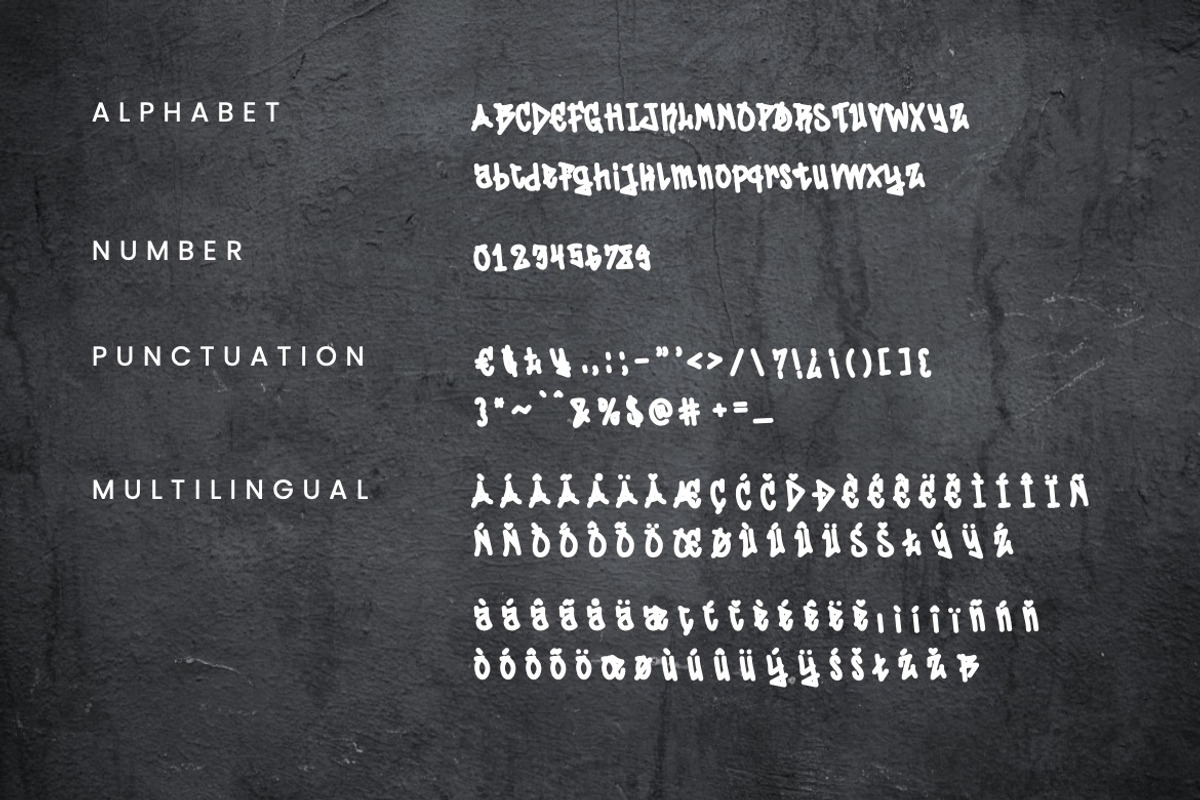 ALPHABET
ABCDEFGHIJKLMNOPQRSTUVWXYZ
abcdefghijklmnopqrstuvwxyz
NUMBER
0123456789
PUNCTUATION
€ ¢ £ ¥ . , : ; - " ' < > / \ ? ! ¿ ¡ ( ) [ ] {
} * ~ ` ^ & % $ @ # + = _
MULTILINGUAL
À Á Â Ã Å Ä Å Æ Ç Ć Č Ď Đ È É Ê Ë Ě Ì Í Î Ï Ñ
Ń Ň Ò Ó Ô Õ Ö Œ Ø Ù Ú Û Ü Ś Š Ł Ý Ÿ Ź
à á â ã å ä æ ç ć č è é ê ë ě ı ì í î ï ñ ń ň
ò ó ô õ ö œ ø ù ú û ü ý ÿ ś š ł ź ž ß